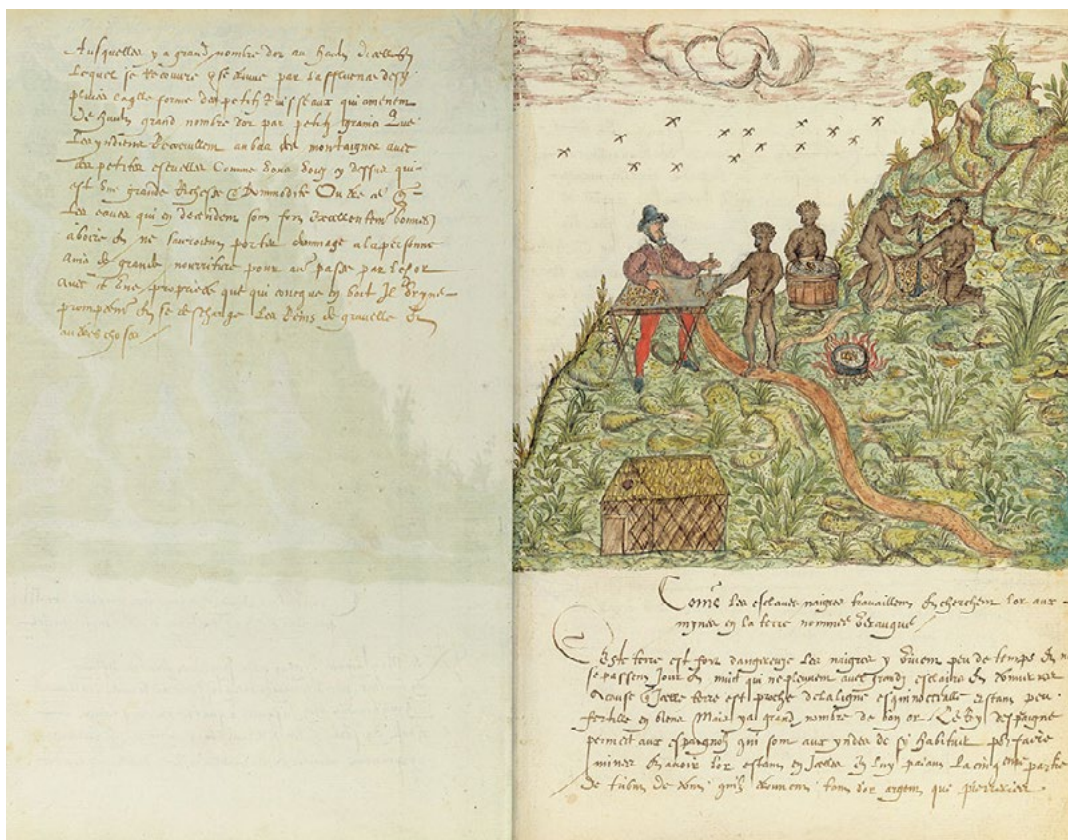 Ausquelles y a grand nombre dor au hault dicelles
Lequel se recouvre & se trouve par laffluence des
pluies laqlle forme des petitz Ruisseaux qui amenent
De hault grand nombre dor par petitz grains Que
Les yndiens Recueillent au bas des montaignes avec
des petites escuelles Comme dont voies cy dessus qui
est une grande Richesse & commodité Oultre ce
Les eaues qui en decendent sont fort excellentes bonnes
a boire Et ne sauroient porter dommage a la personne
ains de grande nourriture pour au passe par lesf or
avec une propriete que qui concque en boit Il Uryne
promptement Et se descharge Les Reins de gravelle Et
aultres choses
Come Les esclaves naigres travaillent Et cherchent lor aux
mynes en la terre nommee Veraugue
Ceste terre est fort dangereuse Les naigres y vivent peu de temps Et
se passent Jour Et nuict qui ne pleuvent avec grandz esclaires Et
a cause Icelle terre est proche de la ligne esquinoctialle estant peu
fertille en biens Mais y a grand nombre de bon or Le Roy despaigne
permect aux espaignolz qui sont aux yndes de sy habituer
miner Et avoir lor estant en Icelles En luy paiant La cinqeme partie
De tribut de tout quilz trouvent tant dor argent que pierreries